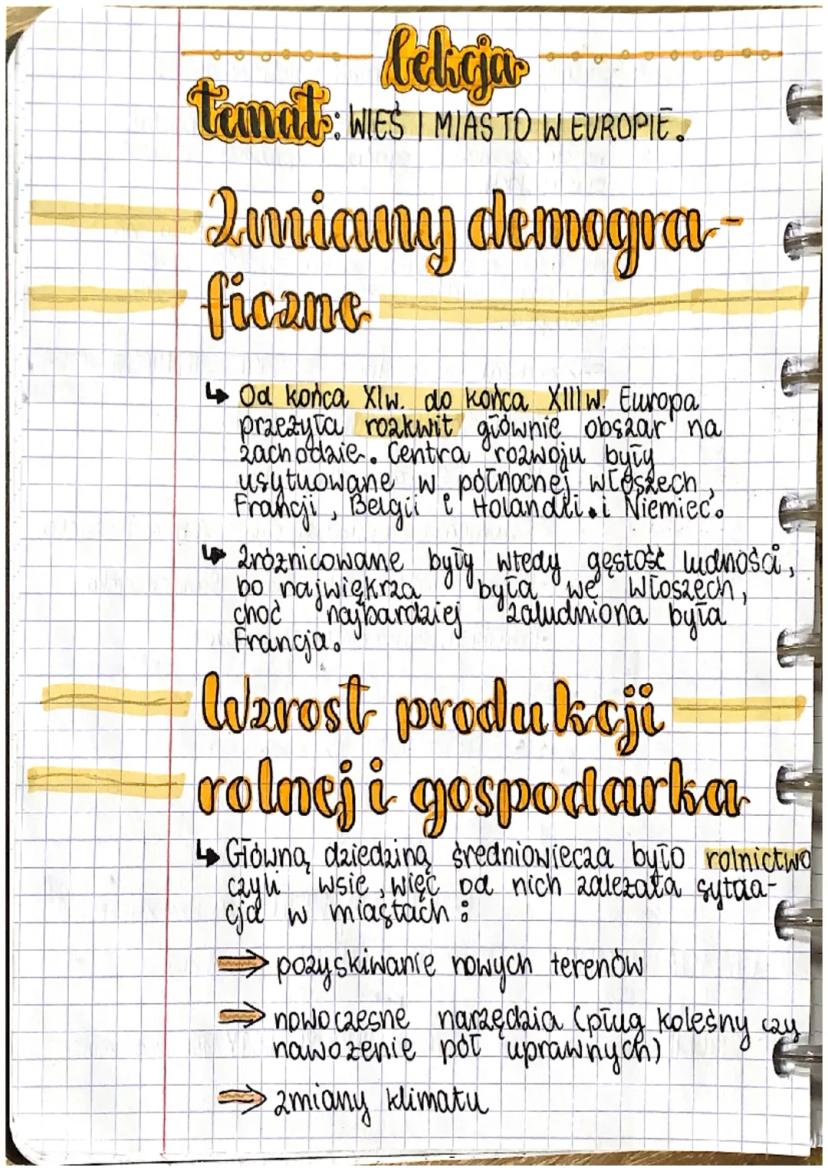 lekcja
temat: WIEŚ I MIASTO W EUROPIE.
Zmiany demogra-
ficzne
↳ Od końca XIw. do końca XIIIw. Europa
przeżyła rozkwit głównie obszar na
zachodzie. Centra rozwoju były
usytuowane w północnej Włoszech,
Francji, Belgii i Holandii. i Niemiec.
↳ Zróżnicowane były wtedy gęstość ludności,
bo najwiękrza była we Włoszech,
choć najbardziej zaludniona była
Francja.
Wzrost produkcji
rolnej i gospodarka
↳ Główną dziedziną średniowiecza było rolnictwo
czyli wsie, więc od nich zależała sytua-
cja w miastach:
⇒ pozyskiwanie nowych terenów
⇒ nowoczesne narzędzia (pług koleśny czy
nawożenie pól uprawnych)
⇒ zmiany klimatu